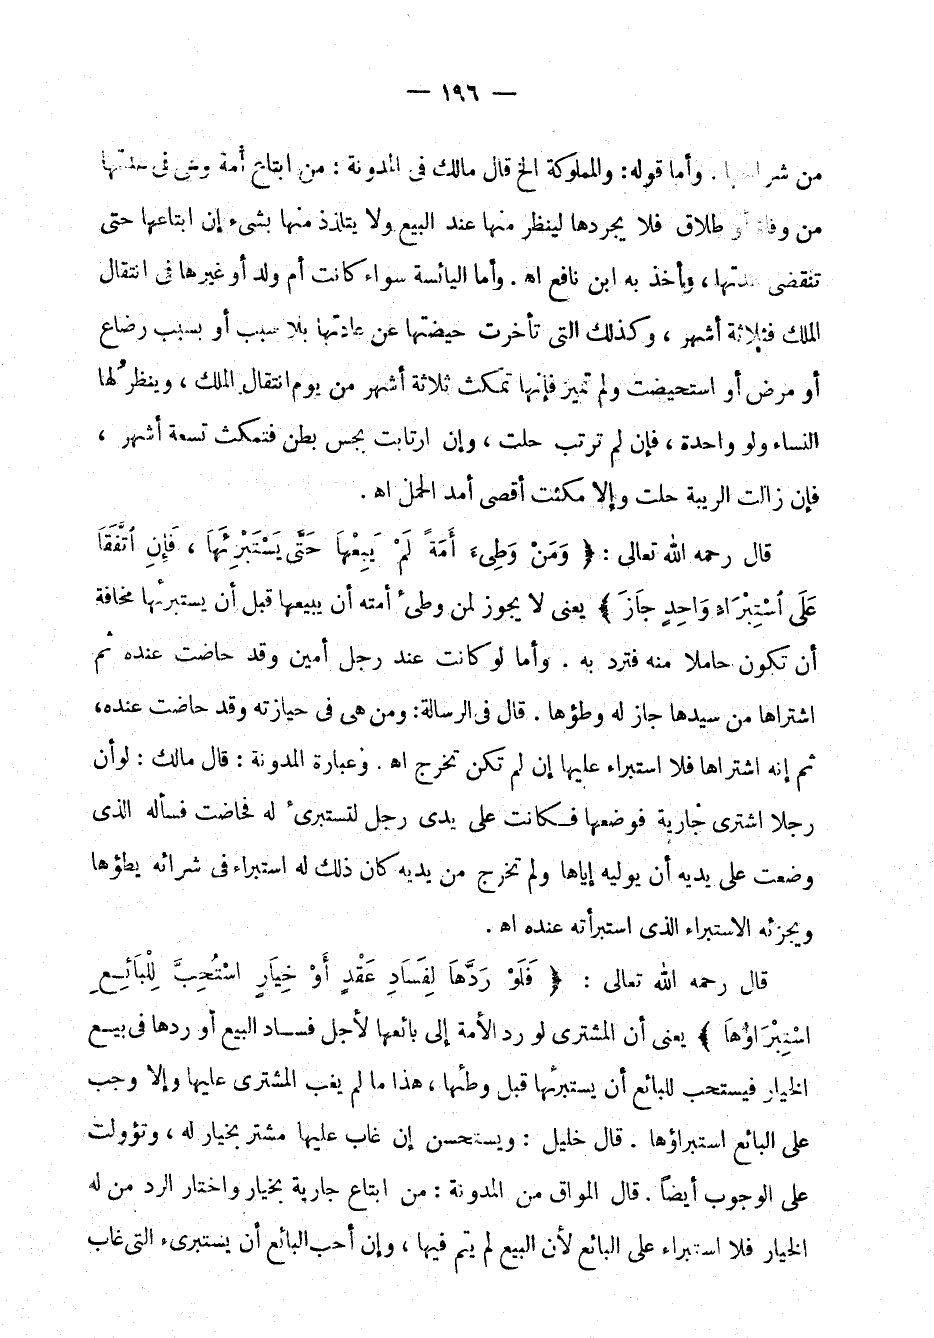 — ١٩٦ —
من شرائها . وأما قوله: والمملوكة الخ قال مالك فى المدونة : من ابتاع أمة وهى فى عدتها
من وفاة أو طلاق فلا يجردها لينظر منها عند البيع ولا يتلذذ منها بشىء إن ابتاعها حتى
تنقضى عدتها ، وبأخذ به ابن نافع اه . وأما اليائسة سواء كانت أم ولد أو غيرها فى انتقال
الملك فثلاثة أشهر ، وكذلك التى تأخرت حيضتها عن عادتها بلا سبب أو بسبب رضاع
أو مرض أو استحيضت ولم تميز فإنها تمكث ثلاثة أشهر من يوم انتقال الملك ، وينظر لها
النساء ولو واحدة ، فإن لم ترتب حلت ، وإن ارتابت بجس بطن فتمكث تسعة أشهر ،
فإن زالت الريبة حلت وإلا مكثت أقصى أمد الحمل اه .
قال رحمه الله تعالى : ﴿ وَمَنْ وَطِىءَ أَمَةً لَمْ يَبِعْهَا حَتَّى يَسْتَبْرِئَهَا ، فَإِنِ ٱتَّفَقَا
عَلَى ٱسْتِبْرَاءٍ وَاحِدٍ جَازَ ﴾ يعنى لا يجوز لمن وطىء أمته أن يبيعها قبل أن يستبرئها مخافة
أن تكون حاملا منه فترد به . وأما لو كانت عند رجل أمين وقد حاضت عنده ثم
اشتراها من سيدها جاز له وطؤها . قال فى الرسالة: ومن هى فى حيازته وقد حاضت عنده،
ثم إنه اشتراها فلا استبراء عليها إن لم تكن تخرج اه . وعبارة المدونة : قال مالك : لو أن
رجلا اشترى جارية فوضعها فكانت على يدى رجل لتستبرىء له فحاضت فسأله الذى
وضعت على يديه أن يوليه إياها ولم تخرج من يديه كان ذلك له استبراء فى شرائه يطؤها
ويجزئه الاستبراء الذى استبرأته عنده اه .
قال رحمه الله تعالى : ﴿ فَلَوْ رَدَّهَا لِفَسَادِ عَقْدٍ أَوْ خِيَارٍ اسْتُحِبَّ لِلْبَائِعِ
اسْتِبْرَاؤُهَا ﴾ يعنى أن المشترى لو رد الأمة إلى بائعها لأجل فساد البيع أو ردها فى بيع
الخيار فيستحب للبائع أن يستبرئها قبل وطئها ، هذا ما لم يغب المشترى عليها وإلا وجب
على البائع استبراؤها . قال خليل : ويستحسن إن غاب عليها مشتر بخيار له ، وتؤولت
على الوجوب أيضاً . قال المواق من المدونة : من ابتاع جارية بخيار واختار الرد من له
الخيار فلا استبراء على البائع لأن البيع لم يتم فيها ، وإن أحب البائع أن يستبرىء التى غاب